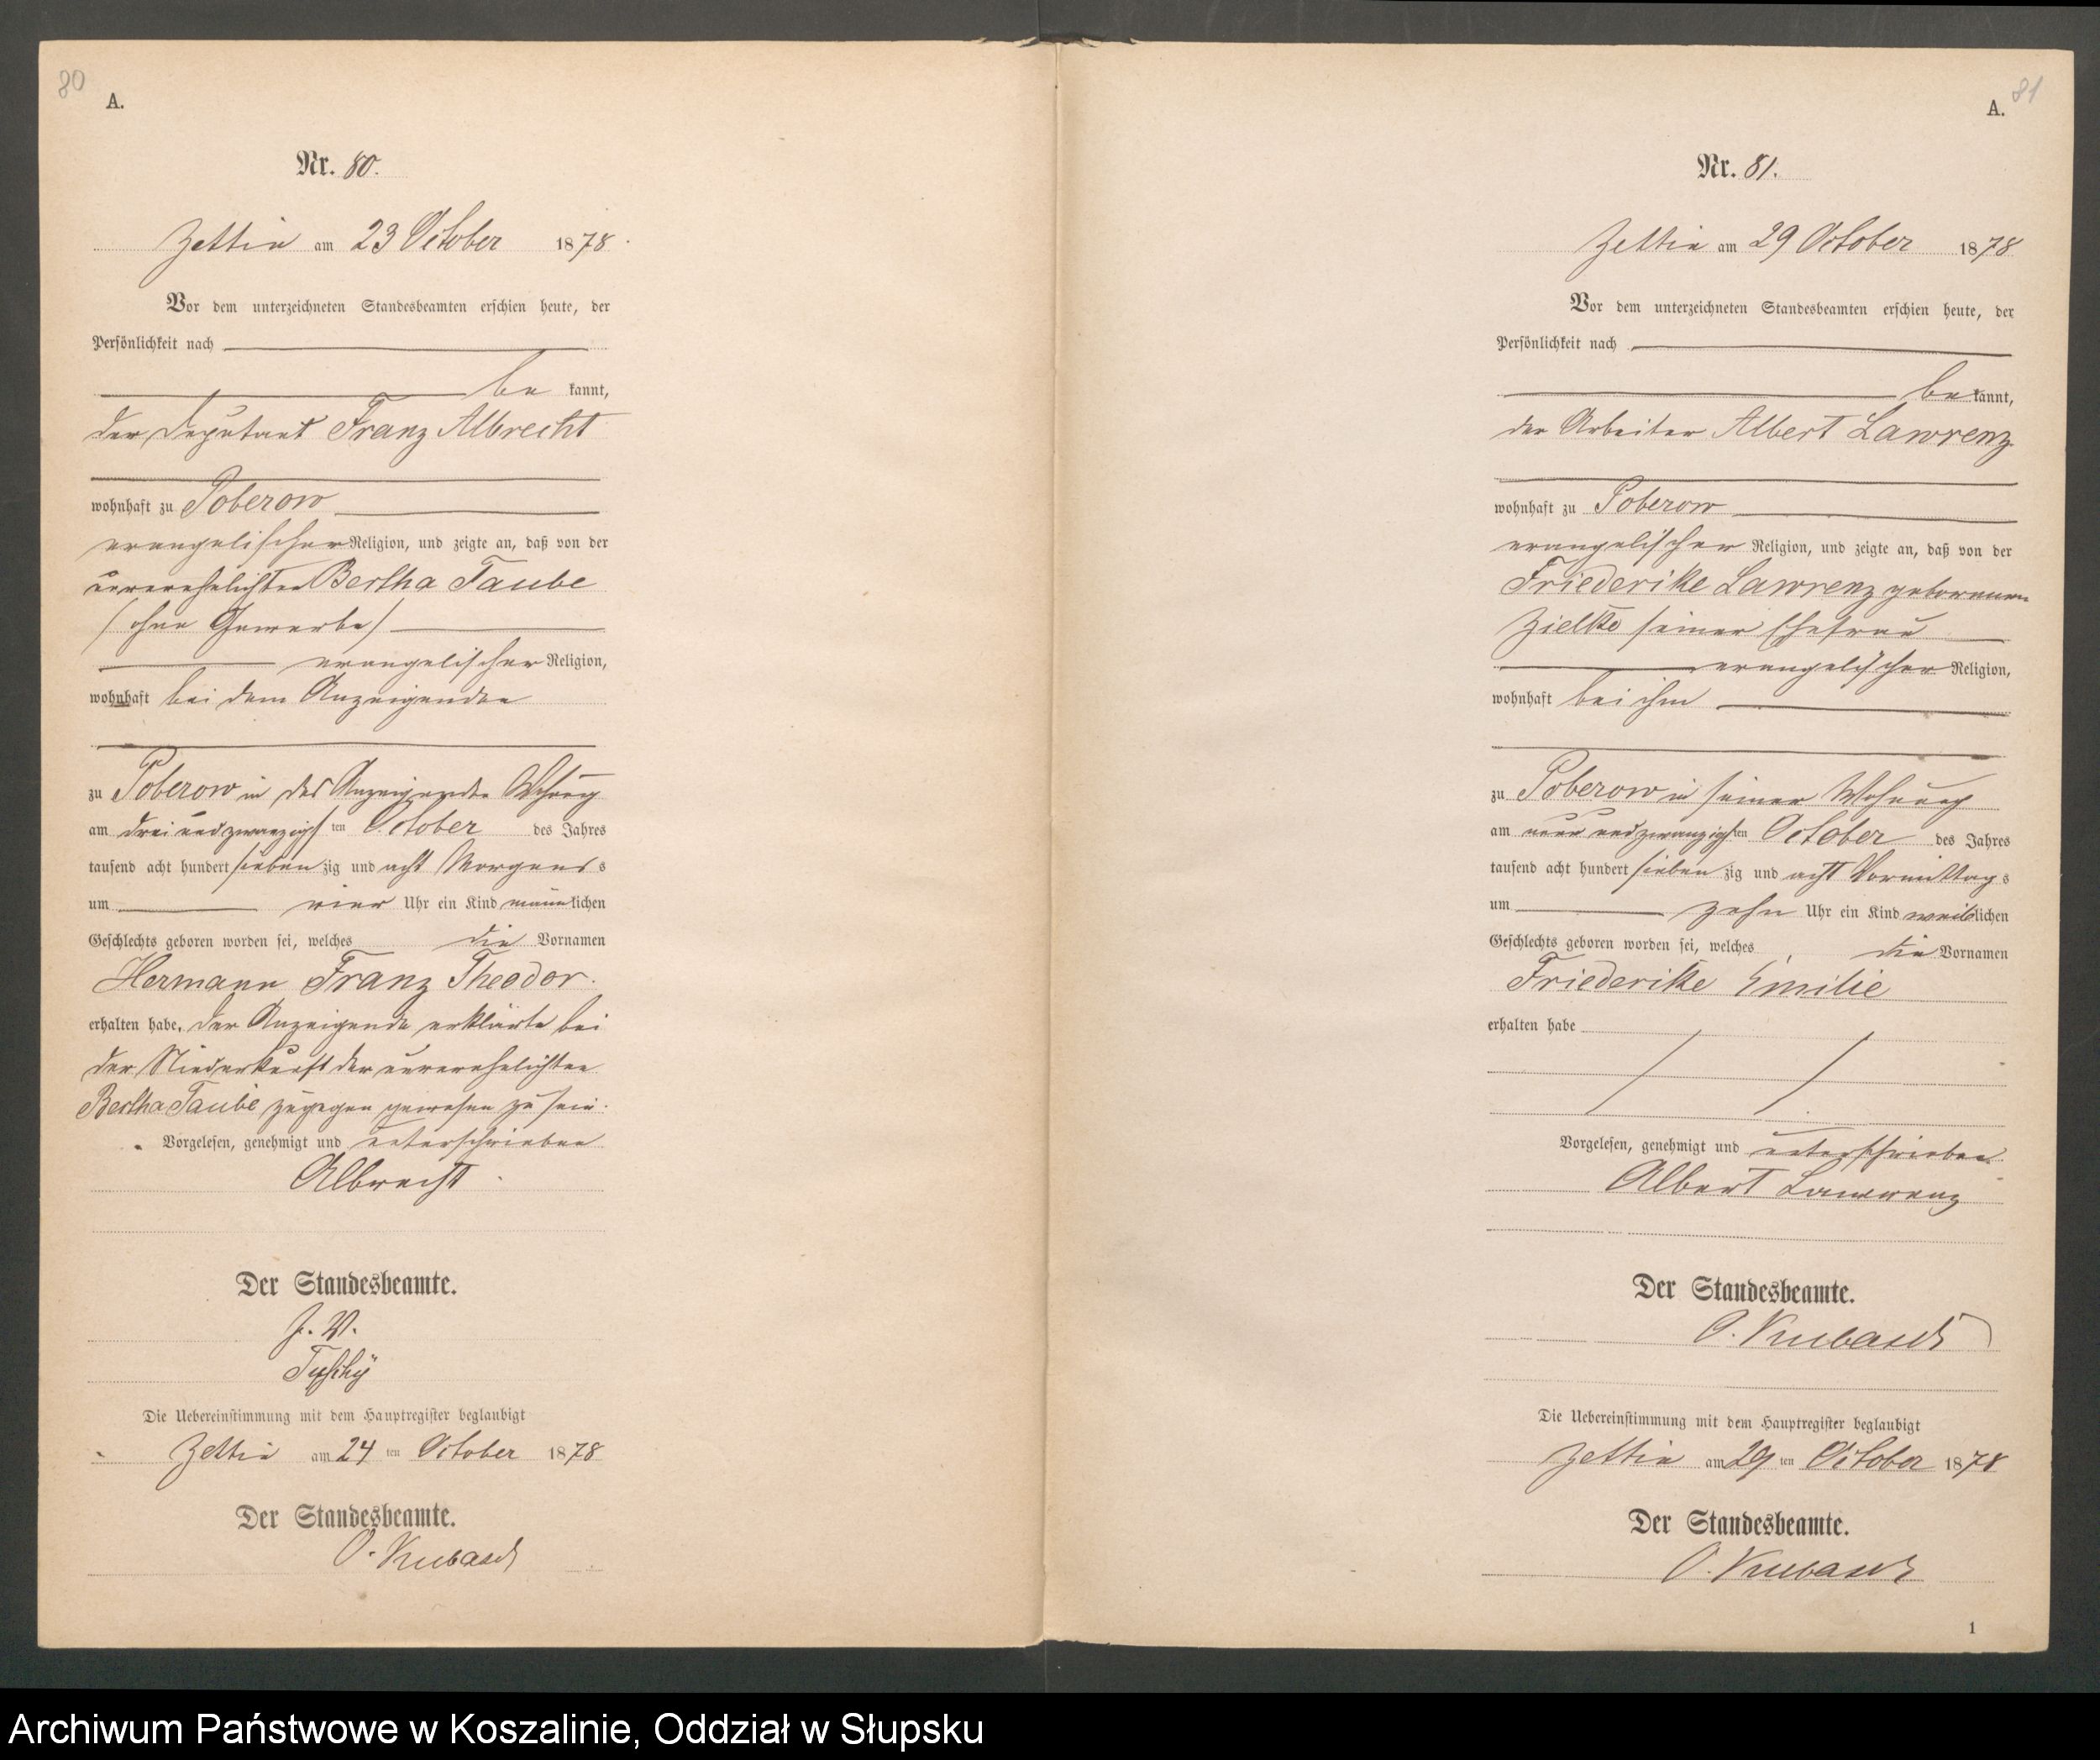 80
A.
Nr. 80.
Zettin am 23 October 1878.
Vor dem unterzeichneten Standesbeamten erschien heute, der
Persönlichkeit nach
be kannt,
der Deputant Franz Albrecht
wohnhaft zu Poberow
evangelischer Religion, und zeigte an, daß von der
unverehelichten Bertha Taube
/ ohne Gewerbe /
evangelischer Religion,
wohnhaft bei dem Anzeigenden
zu Poberow in des Anzeigenden Wohnung
am drei und zwanzigsten October des Jahres
tausend acht hundert siebenzig und acht Morgens s
um vier Uhr ein Kind männlichen
Geschlechts geboren worden sei, welches die Vornamen
Hermann Franz Theodor.
erhalten habe. Der Anzeigende erklärte bei
der Niederkunft der unverehelichten
Bertha Taube zugegen gewesen zu sein.
Vorgelesen, genehmigt und unterschrieben
Albrecht.
Der Standesbeamte.
J. V.
Die Uebereinstimmung mit dem Hauptregister beglaubigt
Zettin am 24 ten October 1878
Der Standesbeamte.
O. Kubasch
81
A.
Nr. 81.
Zettin am 29 October 1878
Vor dem unterzeichneten Standesbeamten erschien heute, der
Persönlichkeit nach
be kannt,
der Arbeiter Albert Lawrenz
wohnhaft zu Poberow
evangelischer Religion, und zeigte an, daß von der
Friederike Lawrenz geborenen
Zielke seiner Ehefrau
evangelischer Religion,
wohnhaft bei ihm
zu Poberow in seiner Wohnung
am neun und zwanzigsten October des Jahres
tausend acht hundert siebenzig und acht Vormittags
um zehn Uhr ein Kind weiblichen
Geschlechts geboren worden sei, welches die Vornamen
Friederike Emilie
erhalten habe
Vorgelesen, genehmigt und unterschrieben
Albert Lawrenz
Der Standesbeamte.
O. Kubasch
Die Uebereinstimmung mit dem Hauptregister beglaubigt
Zettin am 29 ten October 1878
Der Standesbeamte.
O. Kubasch
1
Archiwum Państwowe w Koszalinie, Oddział w Słupsku